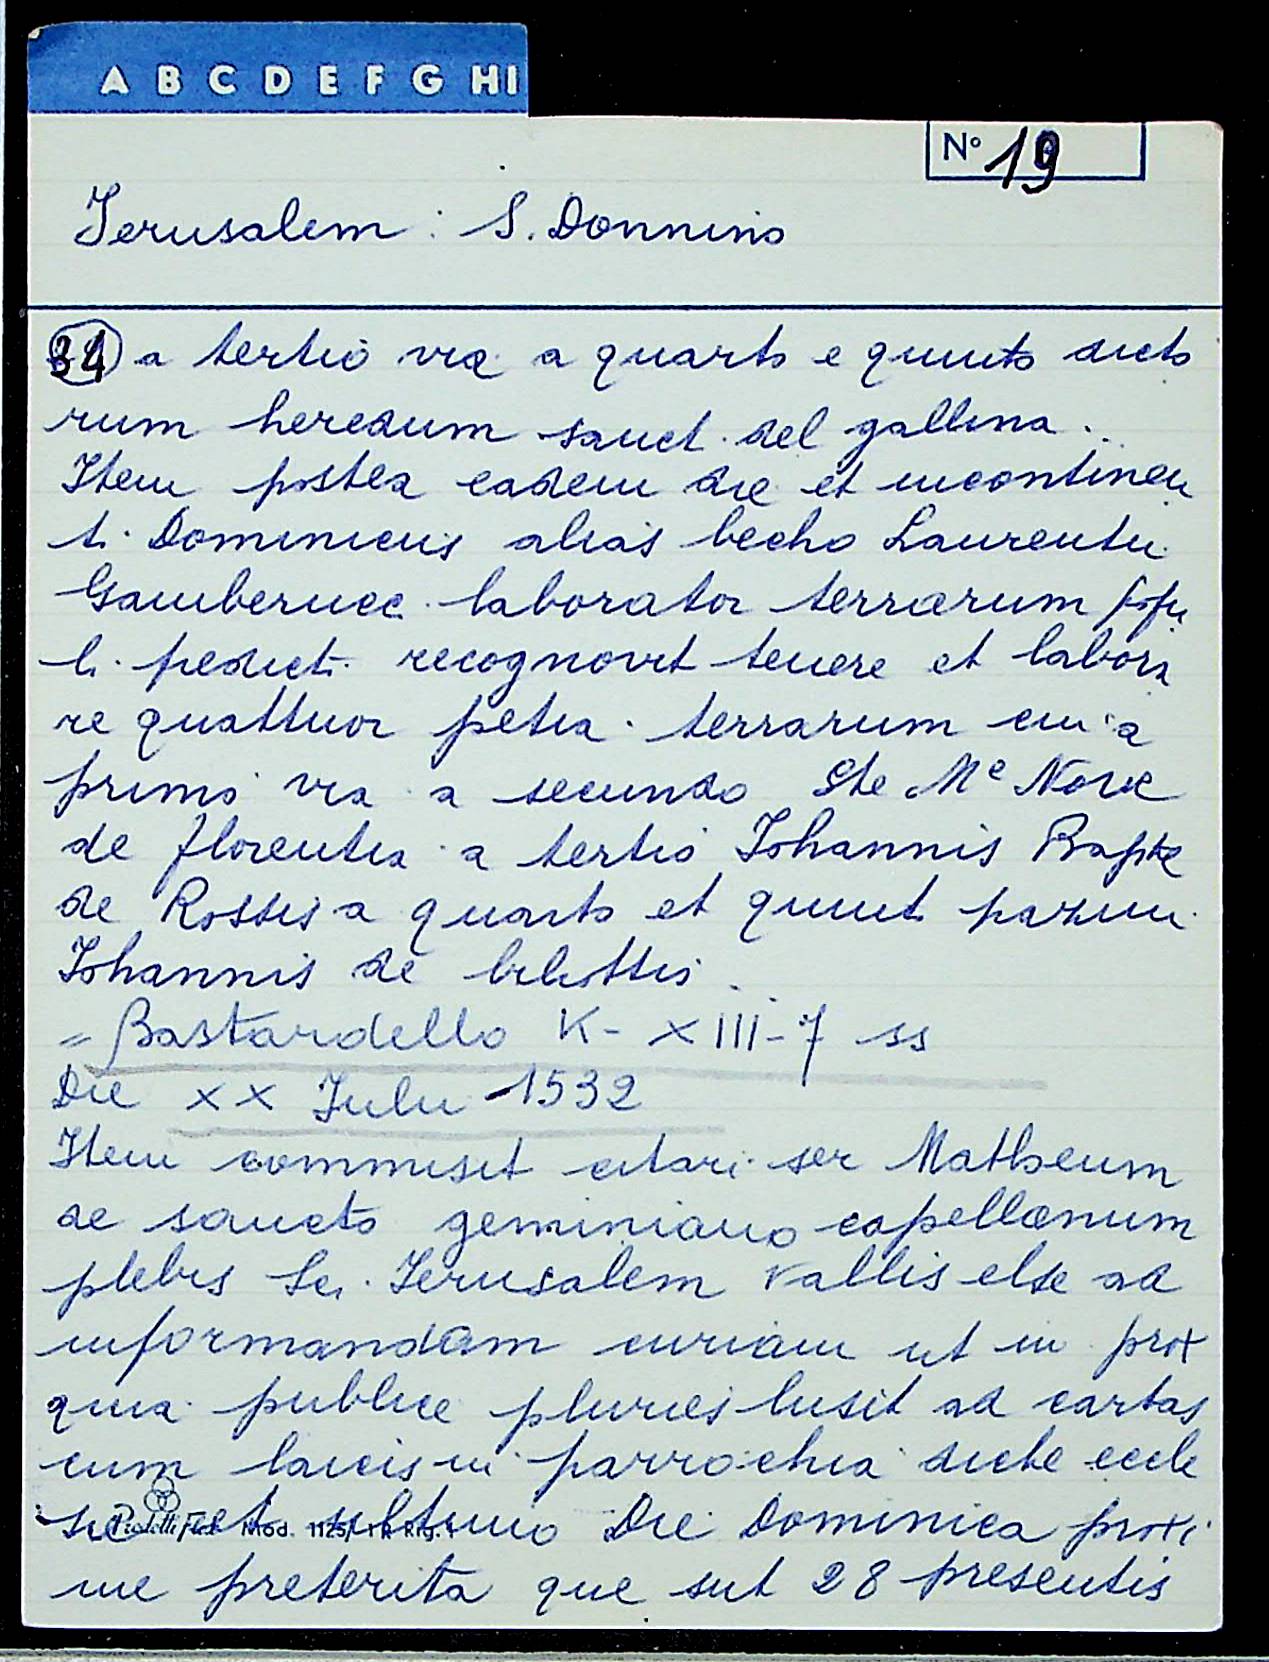 A B C D E F G H I
N° 19
Jerusalem : S. Donnino
34 a tertio via a quarto e quinto dicto
rum heredum sanct. del gallina.
Item postea eadem die et incontinen
ti. Dominicus alias becho Laurentii
laborator terrarum popu
li. predict. recognovit tenere et labora
re quattuor petia. terrarum cui a
primo via a secundo Ste Me Nove
de florentia a tertio Johannis Bapte
de Rossis a quarto et quint.
Johannis de
= Bastardello K-XIII-7 ss
Die XX Julii 1532
Item commisit citari ser Matheum
de sancto geminiano capellanum
plebis Sci. Jerusalem Vallis else ad
informandam curiam ut in prox
quia publice pluries lusit ad cartas
cum laicis in parrochia dicte eccle
sie et ultimo Die Dominica proxi
me preterita que suit 28 presentis
Mod. 1125/